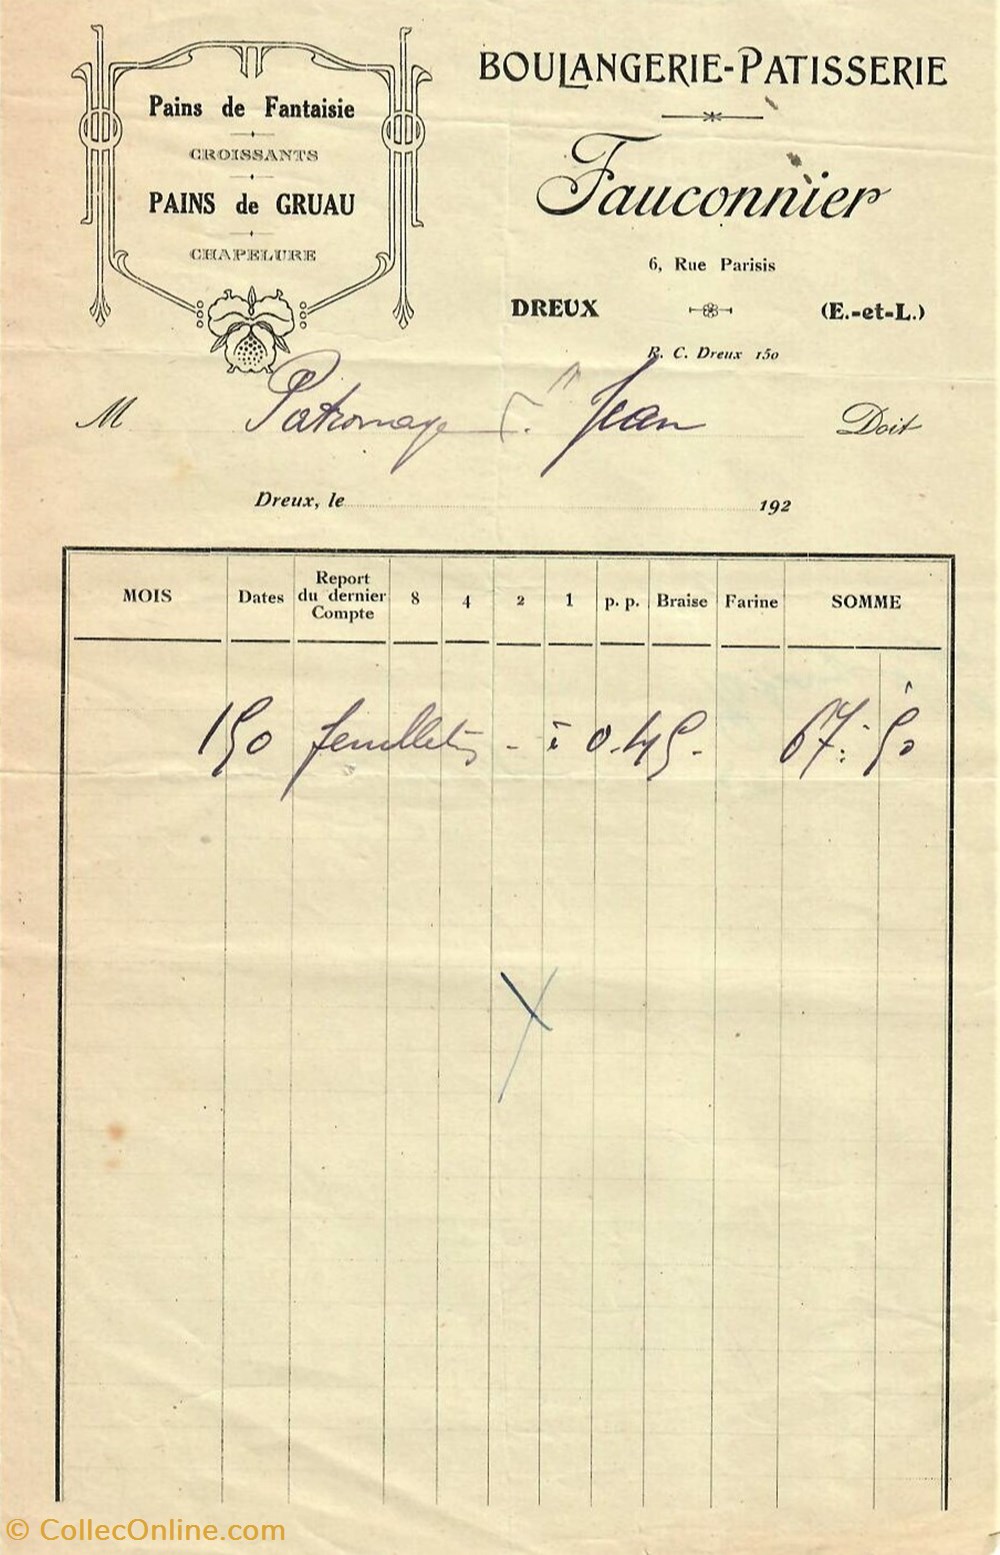 Pains de Fantaisie
CROISSANTS
PAINS de GRUAU
CHAPELURE
BOULANGERIE-PATISSERIE
Fauconnier
6, Rue Parisis
DREUX (E.-et-L.)
R. C. Dreux 150
M Patronage St Jean Doit
Dreux, le 192
MOIS Dates Report du dernier Compte 8 4 2 1 p. p. Braise Farine SOMME
150 feuilletés - à 0.45 - 67.50
© CollecOnline.com